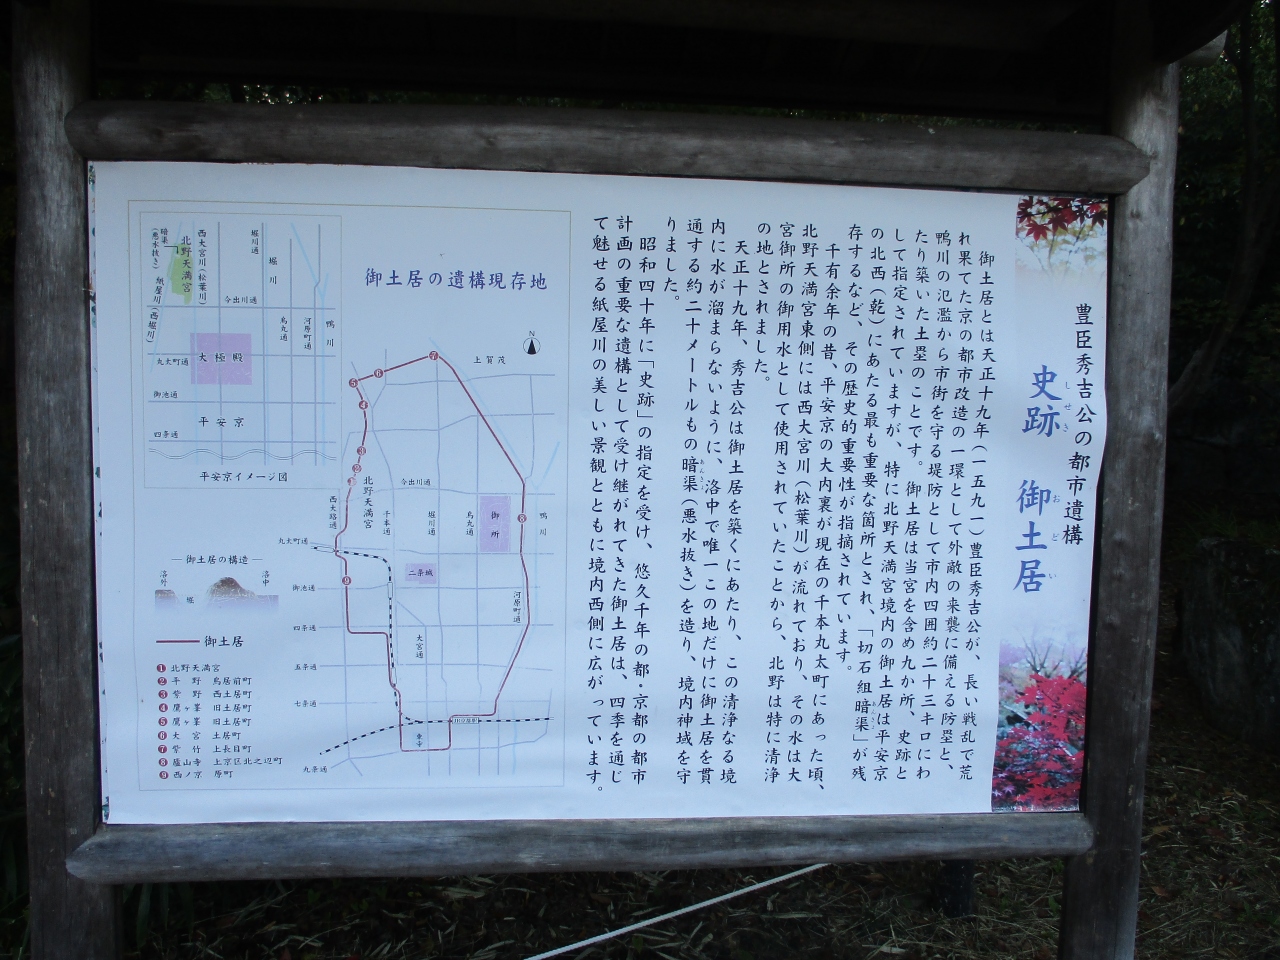 豊臣秀吉公の都市遺構
史跡 御土居
しせき おどい
御土居とは天正十九年(一五九一)豊臣秀吉公が、長い戦乱で荒
れ果てた京の都市改造の一環として外敵の来襲に備える防塁と、
鴨川の氾濫から市街を守る堤防として市内四囲約二十三キロにわ
たり築いた土塁のことです。御土居は当宮を含め九か所、史跡と
して指定されていますが、特に北野天満宮境内の御土居は平安京
の北西(乾)にあたる最も重要な箇所とされ、「切石組暗渠」が残
存するなど、その歴史的重要性が指摘されています。
千有余年の昔、平安京の大内裏が現在の千本丸太町にあった頃、
北野天満宮東側には西大宮川(松葉川)が流れており、その水は大
宮御所の御用水として使用されていたことから、北野は特に清浄
の地とされました。
天正十九年、秀吉公は御土居を築くにあたり、この清浄なる境
内に水が溜まらないように、洛中で唯一この地だけに御土居を貫
通する約二十メートルもの暗渠(悪水抜き)を造り、境内神域を守
りました。
昭和四十年に「史跡」の指定を受け、悠久千年の都・京都の都市
計画の重要な遺構として受け継がれてきた御土居は、四季を通じ
て魅せる紙屋川の美しい景観とともに境内西側に広がっています。
御土居の遺構現存地
N
上賀茂
北野天満宮
今出川通
千本通
堀川通
烏丸通
御所
鴨川
西大路通
丸太町通
二条城
御池通
河原町通
四条通
大宮通
五条通
七条通
東寺
九条通
暗渠
(悪水抜き)
紙屋川(西堀川)
北野天満宮
西大宮川(松葉川)
堀川通
堀川
今出川通
烏丸通
河原町通
鴨川
大極殿
丸太町通
御池通
平安京
四条通
平安京イメージ図
御土居の構造
洛外
堀
洛中
御土居
1 北野天満宮
2 平野 鳥居前町
3 紫野 西土居町
4 鷹ヶ峯 旧土居町
5 鷹ヶ峯 旧土居町
6 大宮 土居町
7 紫竹 上長目町
8 廬山寺 上京区北之辺町
9 西ノ京 原町